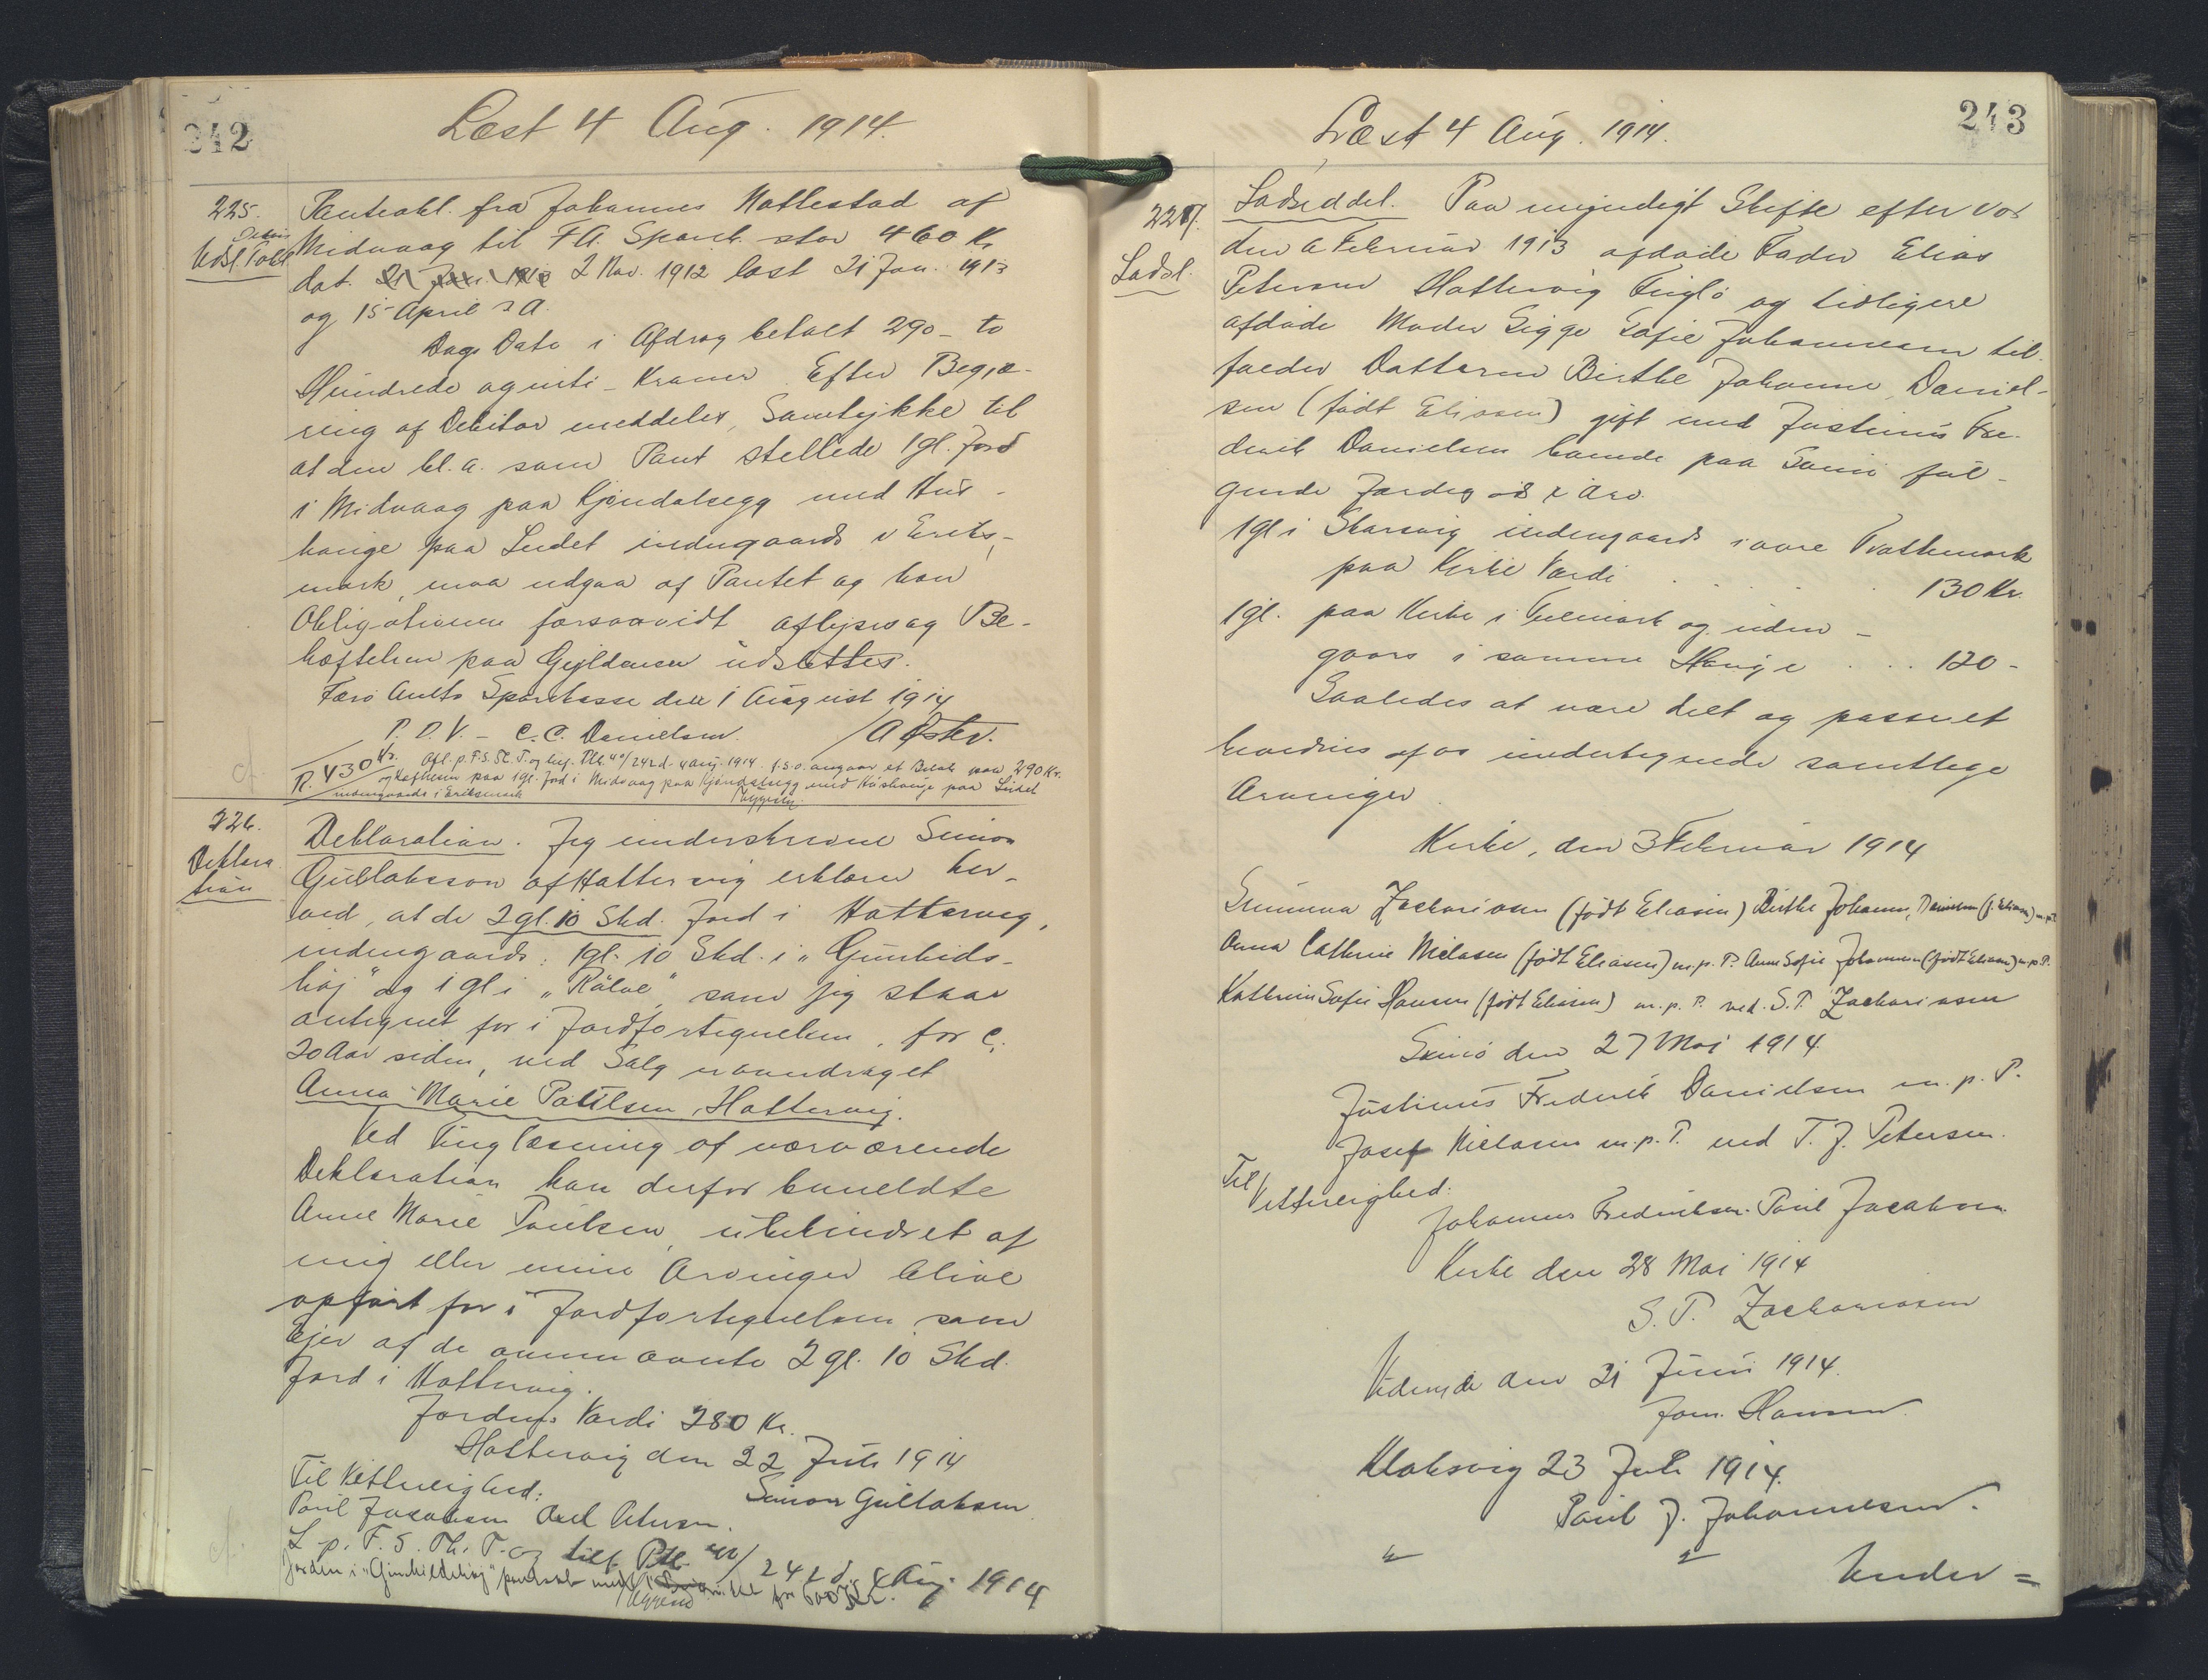 242
Læst 4 Aug. 1914.
225.
Delvis
Udsl. Pobl.
Panteobl. fra Johannes Hattestad af
Midvaag til F.A. Spark. stor 460 Kr
dat. 21 Jan. 1913 2 Nov. 1912 læst 21 Jan. 1913
og 15 April s A.
Dags Dato i Afdrag betalt 290 - to
Hundrede og niti - Kroner. Efter Begjæ-
ring af Debitor meddeles, Samtykke til
at den bl. a. som Pant stellede 1 gl. Jord
i Midvaag paa Kjøndalsegg med Hus-
hauge paa Leidet indengaards i Eriks-
mark, maa udgaa af Pantet og kan
Obligationen forsaavidt aflyses og Be-
hæftelsen paa Gyldenen udslettes.
Færø Amts Sparekasse den 1 August 1914
P. O. V. - C. C. Danielsen. / A Øster.
R. 430 Kr. Afl. p. F. S. Th. T. og bef. Pbl. 40/242 d. 4 Aug. 1914 f. s. o. angaar et Beløb paa 290 Kr.
og Hæftelsen paa 1 gl. Jord i Midvaag paa Kjøndalsegg med Húshauge paa Leidet
indengaards i Eriksmark
226.
Deklara
tion
Deklaration. Jeg underskrevne Simon
Gullaksson af Hattervig erklærer her-
ved, at de 2 gl. 10 Skd. Jord i Hattervig,
indengaards: 1 gl. 10 Skd. i "Gunhilds-
høj" og 1 gl i "Rálve" som jeg staar
antegnet for i Jordfortegnelsen, for c.
20 Aar siden, ved Salg er overdraget
Anna Marie Poulsen, Hattervig.
Ved Tinglæsning af nærværende
Deklaration kan derfor bemeldte
Anne Marie Poulsen, uhehindret af
mig eller mine Arvinger blive
opført for i Jordfortegnelsen som
Ejer af de ommeldte 2 gl. 10 Skd.
Jord i Hattervig.
Jordens Værdi 280 Kr.
Hattervig den 22 Juli 1914
Til Vitterlighed: Simon Gullaksen
Poul Jacobsen Axel Petersen.
L. p. F. S. Th. T. og tilf. Pbl. 40/242 d. 4 Aug. 1914
Jorden i "Gunhildshøj" pantsat
243
Læst 4 Aug. 1914.
227.
Ladsl.
Ladseddel. Paa myndigt Skifte efter vor
den 6 Februar 1913 afdøde Fader Elias
Petersen Hattervig Fuglø og tidligere
afdøde Moder Sigge Sofie Johannesen til-
falder Datteren Birthe Johanne Daniel-
sen (født Eliasen) gift med Justinus Fre-
derik Danielsen boende paa Svinø føl-
gende Jordegods i Arv.
1 gl i Skarsvig indengaards i øvre Trøthemark
paa Kirke Værdi . . . . 130 Kr.
1 gl. paa Kirke i Gulmark og uden-
gaars i samme Hauge . . . 120 -
Saaledes at være delt og passeret
bevidnes af os undertegnede samtlige
Arvinger
Kirke, den 3 Februar 1914
Sunneva Zachariasen (født Eliasen) Birthe Johanne Danielsen (f. Eliasen) m.p.P.
Anna Cathrine Nielasen (født Eliasen) m. p. P. Anne Sofie Johannesen (født Eliasen) m.p.P.
Kathrine Sofie Hansen (født Eliasen) m. p. P. ved. S. P. Zachariasen
Svinø den 27 Maj 1914.
Justinus Frederik Danielsen m. p. P.
Josef Nielasen m. p. P. ved T. J. Petersen.
Til Vitterlighed:
Johannes Frederiksen. Poul Jacobsen
Kirke den 28 Mai 1914
S. P. Zachariasen
Videreide den 21 Juni 1914.
Joen. Hansen.
Klaksvig 23 Juli 1914.
Poul J. Johannesen.
Under =